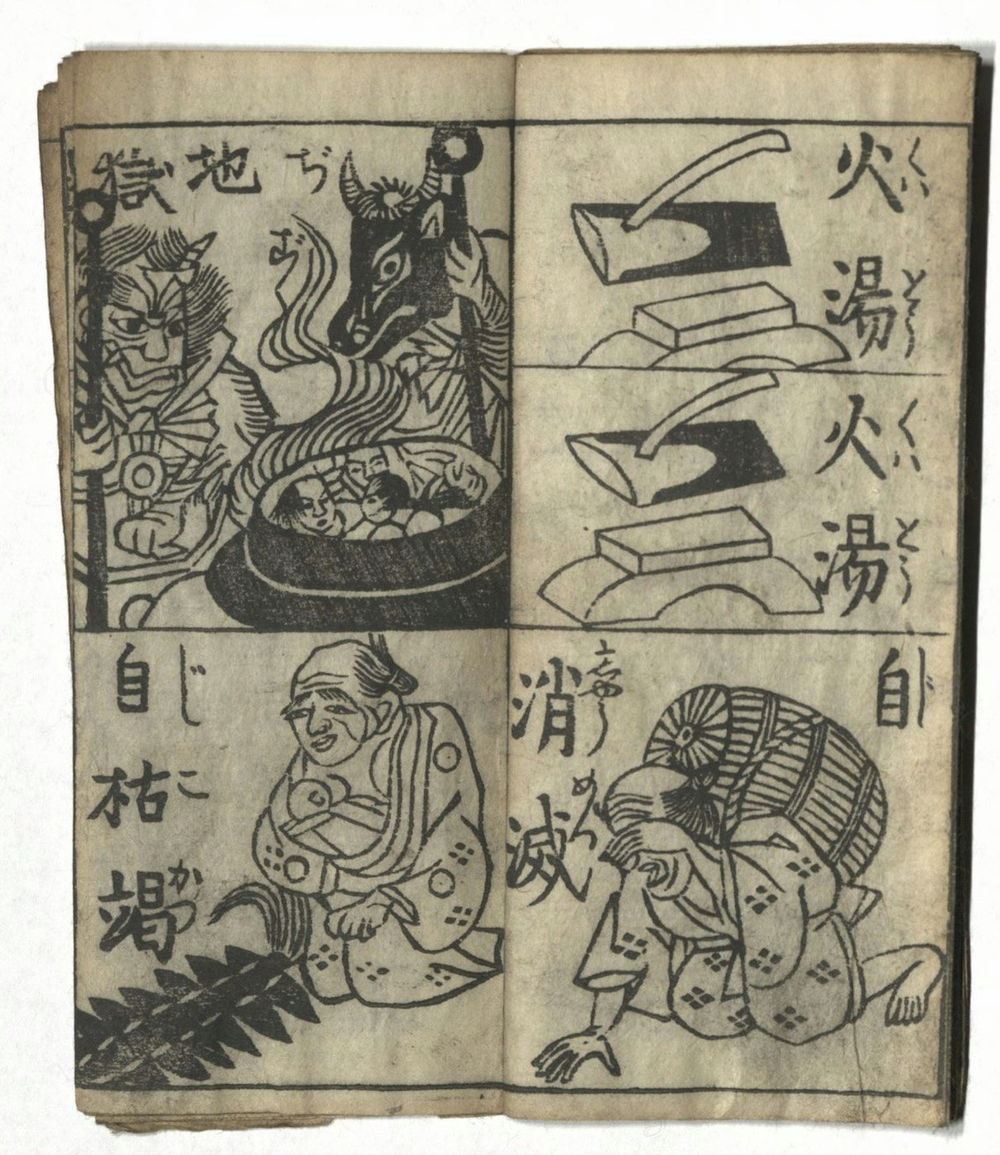 火湯
くハ とう
火湯
くハ とう
自
じ
消滅
志やう めつ
地獄
ぢ ごく
自枯竭
じ こ かつ